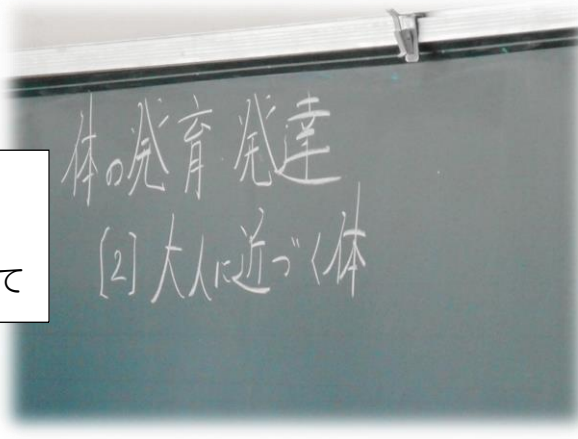 体の発育 発達
[2] 大人に近づく体
て